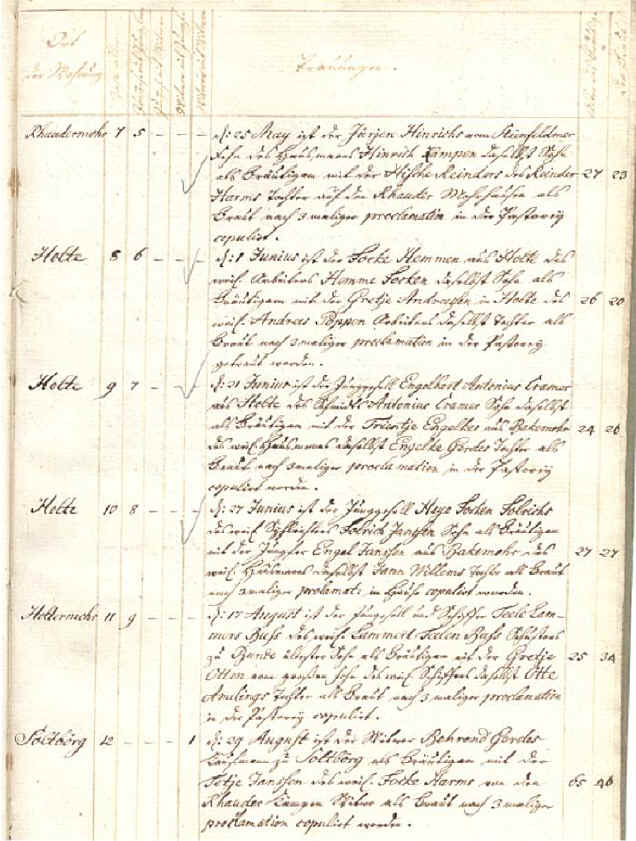 Ort
der Wohnung
Trauungen.
Rhaudermohr 7 5 - - - d: 25 May ist der Jurjen Hinrichs vom
Sohn des Hausmanns Hinrich Kampen daselbst Sohn
als Bräutigam mit der Hische Reinders des Reinder 27 23
Harms Tochter auf den Rhauder als
Braut nach 3 maliger proclamation in der Pastorey
copulirt.
Holte 8 6 - - - d: 1 Junius ist der Focke Hemmen aus Holte des
weil. Arbeiters Hemme Focken daselbst Sohn als
Bräutigam mit der Gretje Andreessen in Holte des 26 20
weil. Andreas Poppen Arbeiters daselbst Tochter als
Braut nach 3 maliger proclamation in der Pastorey
getraut worden.
Holte 9 7 - - - d: 21 Junius ist der Junggesell Engelbart Antonius Cramer
aus Holte des Schmidts Antonius Cramer Sohn daselbst
als Bräutigam mit der Trientje Engelkes aus Bakemohr 24 26
des weil. Hausmanns daselbst Engelke Gerdes Tochter als
Braut nach 3 maliger proclamation in der Pastorey
copulirt worden.
Holte 10 8 - - - d: 27 Junius ist der Junggesell Haye Focken Folrichs
des weil. Folrich Janssen Sohn als Bräutigam
mit der Jungfer Engel Janssen aus Bakemohr des 27 27
weil. Hausmanns daselbst Jann Willems Tochter als Braut
nach 3 maliger proclamat: in Hause copulirt worden.
Holtermohr 11 9 - - - d: 17 August ist der Junggesell und Schiffer Teele Lam-
mers Buss des weil. Lammert Teelen Buss Schusters
zu Bunde ältester Sohn als Bräutigam mit der Gretje 25 34
Otten vom grossen Fehn des weil. Schiffers daselbst Otte
Tochter als Braut nach 3 maliger proclamation
in der Pastorey copulirt.
Soltbörg 12 - - - 1 d: 29 August ist der Witwer Behrend Gerdes
Kaufmann zu Soltbörg als Bräutigam mit der
Tetje Janssen des weil. Focke Harms von den 65 46
Rhauder Kampen Witwe als Braut nach 3 maliger
proclamation copulirt worden.